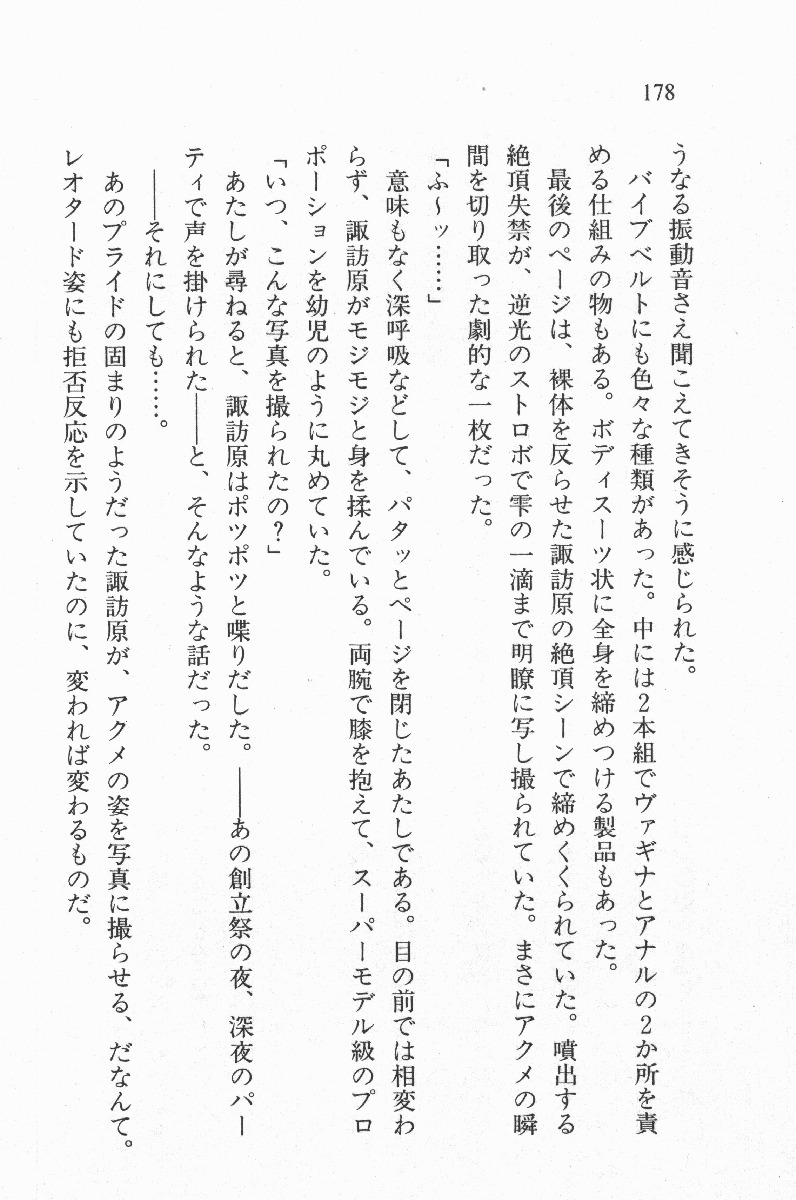 178
うなる振動音さえ聞こえてきそうに感じられた。
　バイブベルトにも色々な種類があった。中には２本組でヴァギナとアナルの２か所を責
める仕組みの物もある。ボディスーツ状に全身を締めつける製品もあった。
　最後のページは、裸体を反らせた諏訪原の絶頂シーンで締めくくられていた。噴出する
絶頂失禁が、逆光のストロボで雫の一滴まで明瞭に写し撮られていた。まさにアクメの瞬
間を切り取った劇的な一枚だった。
「ふ〜ッ……」
　意味もなく深呼吸などして、パタッとページを閉じたあたしである。目の前では相変わ
らず、諏訪原がモジモジと身を揉んでいる。両腕で膝を抱えて、スーパーモデル級のプロ
ポーションを幼児のように丸めていた。
「いつ、こんな写真を撮られたの？」
　あたしが尋ねると、諏訪原はポツポツと喋りだした。――あの創立祭の夜、深夜のパー
ティで声を掛けられた――と、そんなような話だった。
　――それにしても……。
　あのプライドの固まりのようだった諏訪原が、アクメの姿を写真に撮らせる、だなんて。
レオタード姿にも拒否反応を示していたのに、変われば変わるものだ。